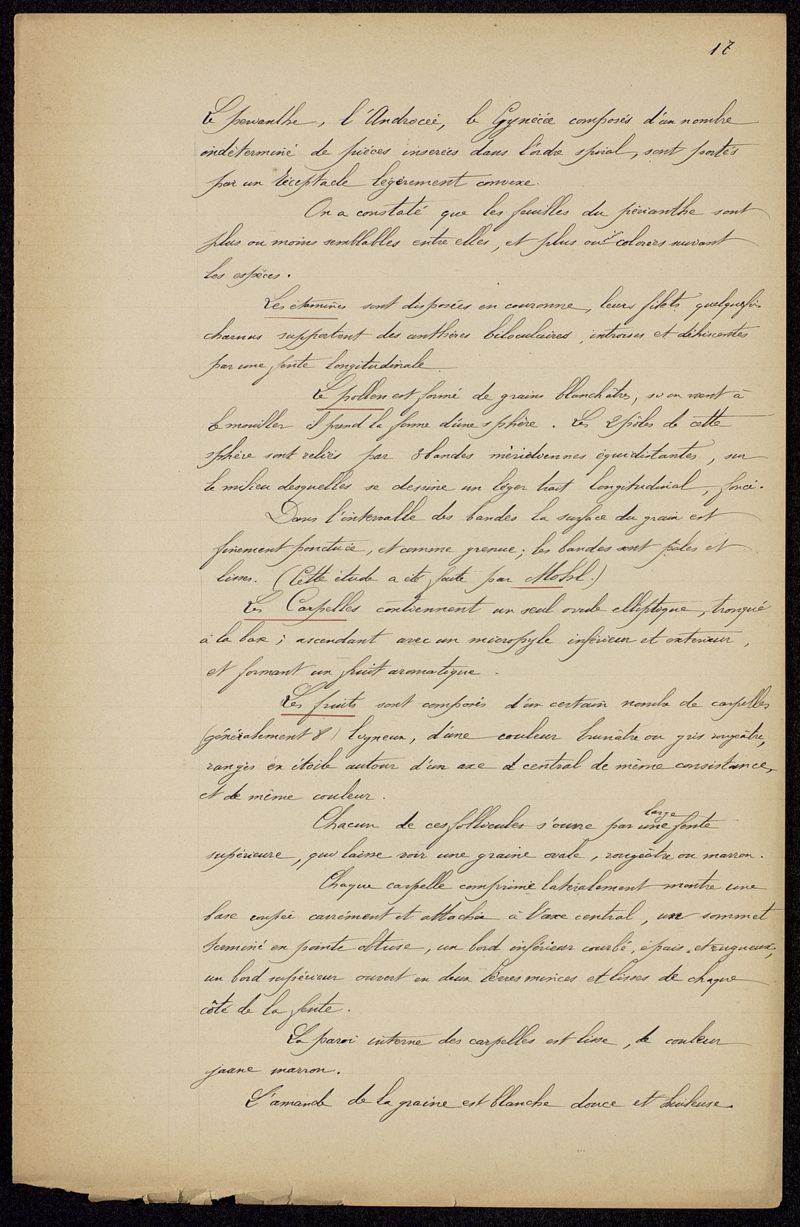 17
Le périanthe, l'Androcée, le Gynécée composés d'un nombre
indéterminé de pièces inserées dans l'ordre spiral, sont portés
par un réceptacle légèrement convexe.
On a constaté que les feuilles du périanthe sont
plus ou moins semblables entre elles, et plus ou colorées suivant
les espèces.
Les étamines sont disposées en couronne, leurs filets quelquefois
charnus supportent des anthères biloculaires, introrses et déhiscentes
par une fente longitudinale
Le pollen est formé de grains blanchâtres, si on vient à
le mouiller il prend la forme d'une sphère. Les 2 pôles de cette
sphère sont reliés par 3 bandes méridiennes équidistantes, sur
le milieu desquelles se dessine un léger trait longitudinal, foncé.
Dans l'intervalle des bandes la surface du grain est
finement ponctuée, et comme grenue; les bandes sont pâles et
lisses. (Cette étude a été faite par Mohl.)
Les Carpelles contiennent un seul ovule elliptique, tronqué
à la base; ascendant avec un micropyle inférieur et extérieur,
et formant un fruit aromatique.
Les fruits sont composés d'un certain nombre de carpelles
(généralement 8) ligneux, d'une couleur brunâtre ou gris rougeâtre,
rangés en étoile autour d'un axe central de même consistance,
et de même couleur.
Chacun de ces follicules s'ouvre par une large fente
supérieure, qui laisse voir une graine ovale, rougeâtre ou marron.
Chaque carpelle comprimé latéralement montre une
base coupée carrément et attachée à l'axe central, un sommet
terminé en pointe obtuse, un bord inférieur courbé, épais et rugueux,
un bord supérieur ouvert en deux lèvres minces et lisses de chaque
côté de la fente.
La paroi interne des carpelles est lisse, de couleur
jaune marron.
L'amande de la graine est blanche douce et huileuse.